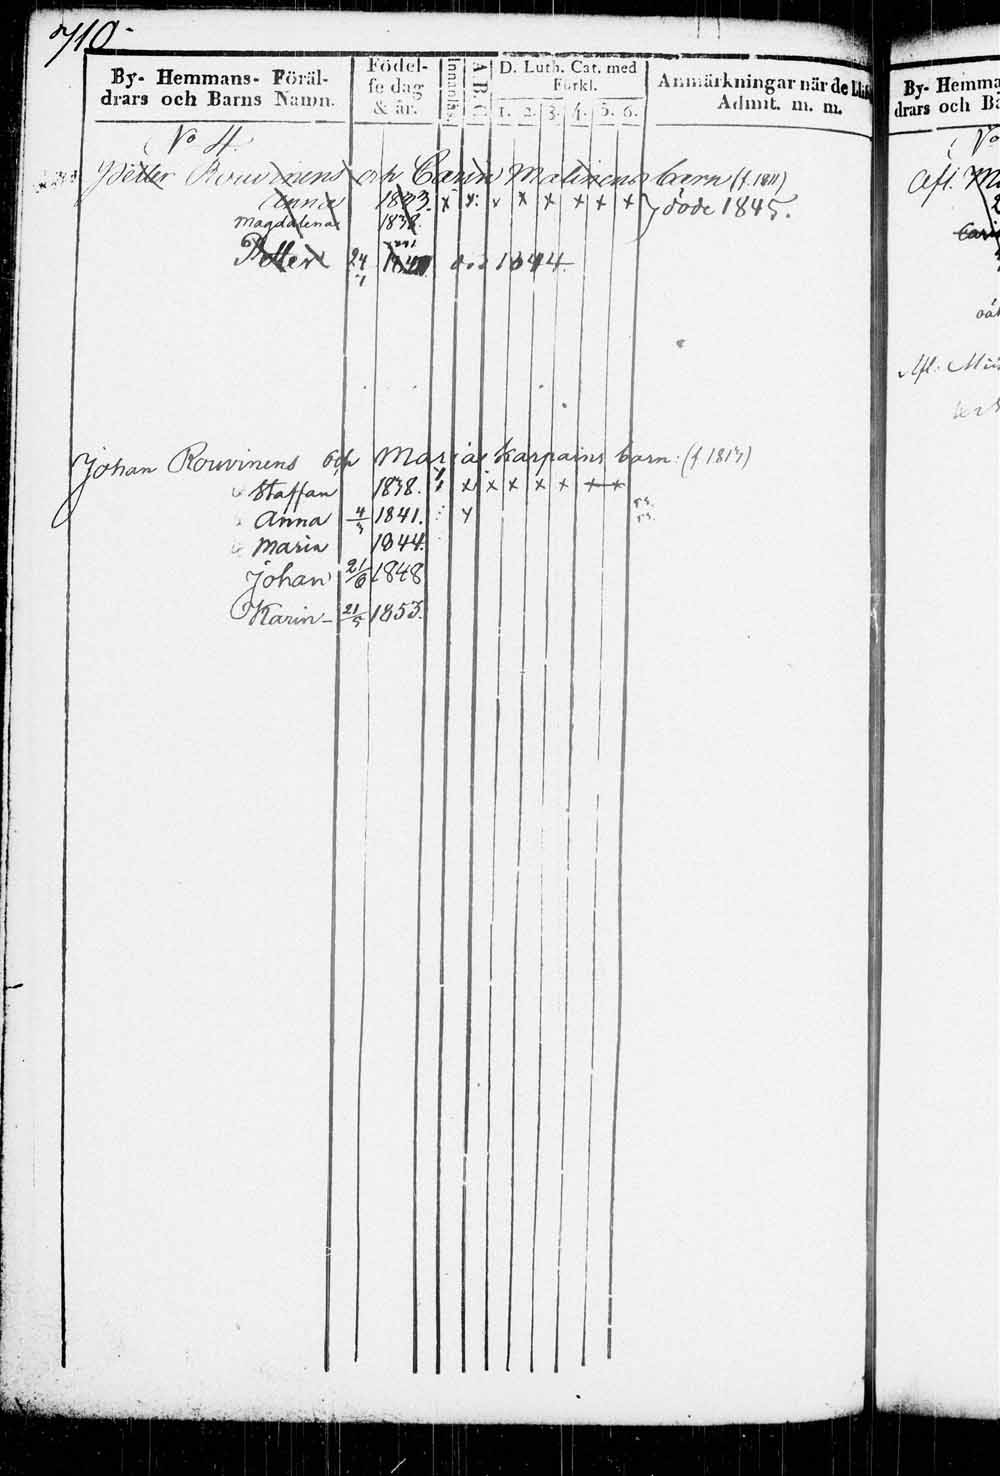 710.
By- Hemmans- Föräl-
drars och Barns Namn.
Födel-
se dag
& år.
Innanläs.
A.B.C.
D. Luth. Cat. med
Förkl.
1. 2. 3. 4. 5. 6.
Anmärkningar när de blif
Admit. m. m.
No 4.
Petter Rouvinens och Carin Matinens barn (f. 1811)
Anna 1833. x x x x x x x } döde 1845.
Magdalena 1838.
Petter 24/1 död 1844.
Johan Rouvinens och Maria Karpains barn. (f 1813)
Staffan 1838. x x x x x x x x
Anna 4/3 1841. x
Maria 1844.
Johan 21/6 1848
Karin 21/5 1853.
By- Hemma
drars och Ba
No
Afl.
Carin
Afl.